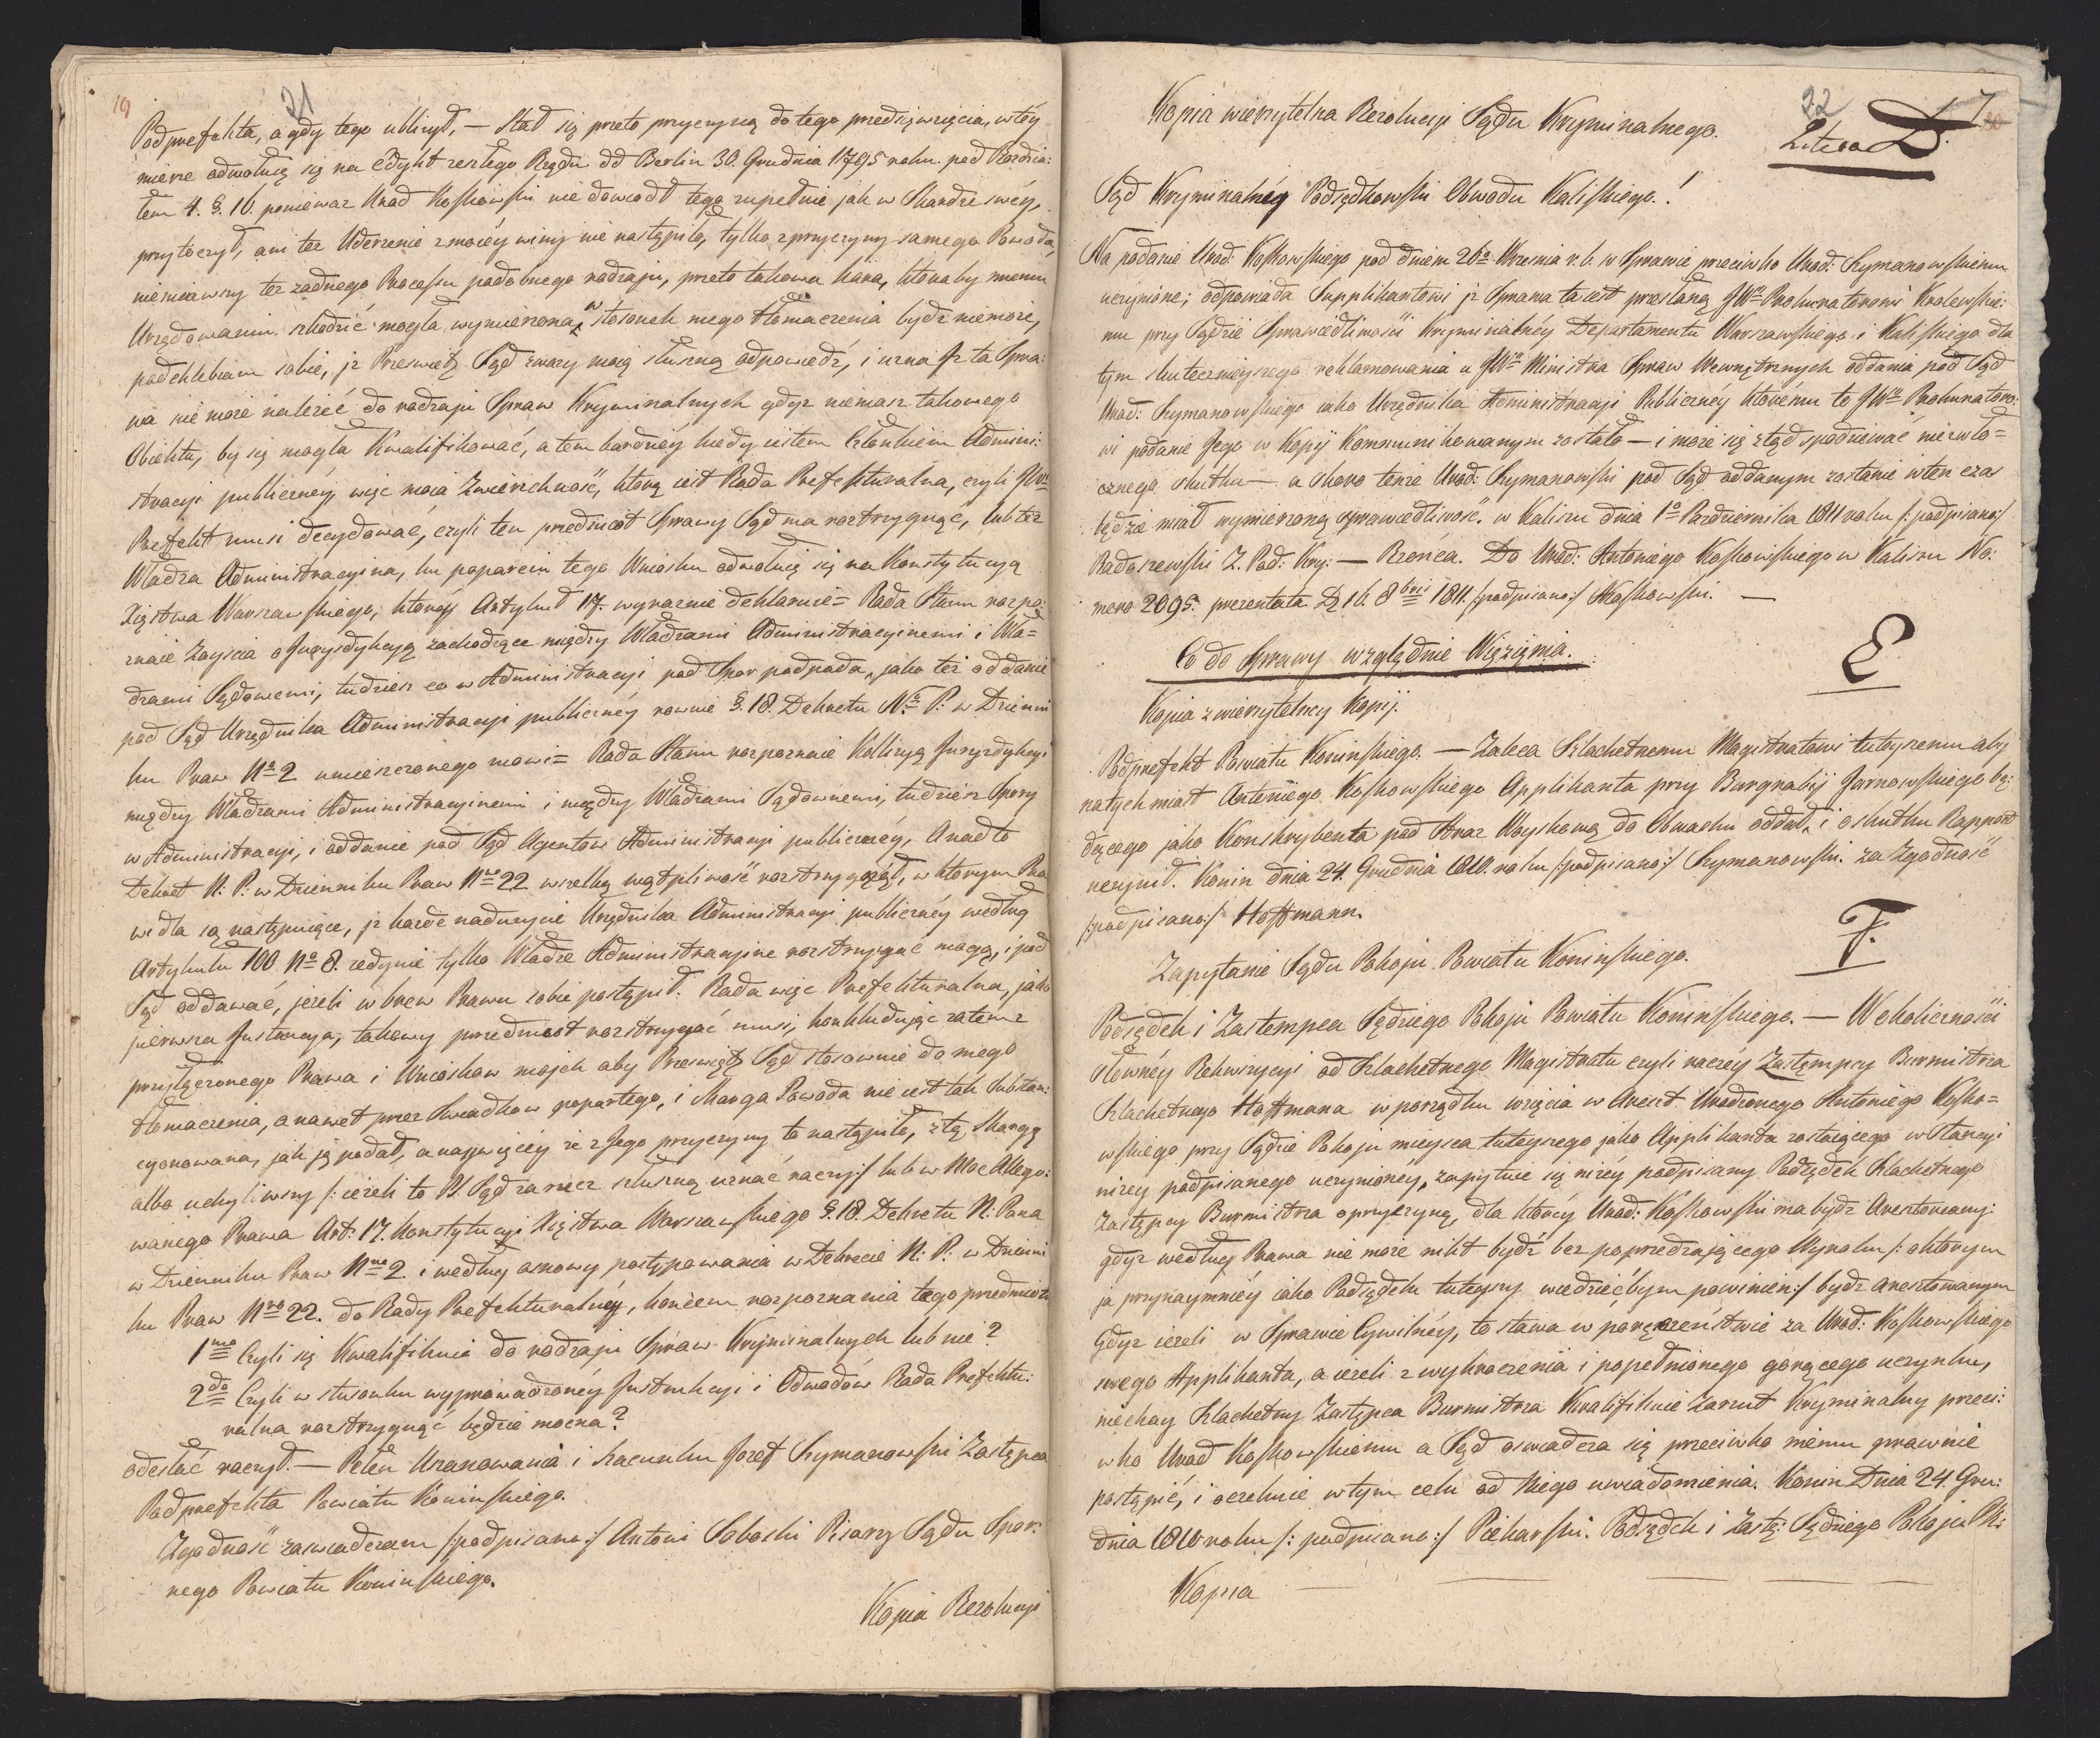 19
21
Podprefekta, a gdy tego ubliżył, — Stał się przeto przyczyną do tego przedsięwzięcia, w téy
mierze odwołuię się na Edykt zeszłego Rządu dd Berlin 30. Grudnia 1795 roku pod Rozdzia:
łem 4. §. 16. poniewaz Urod Koskowski nie dowiodł tego zupełnie jak w Skardze swéy
przytoczył, ani tez Uderzenie z moiéy winy nie nastąpiło, tylko z przyczyny samego Powoda,
niemiawszy tez zadnego Procesu podobnego rodzaju, przeto takowa kara, ktoraby memu
Urzędowaniu szkodzić mogła, wymierzona w stosonek mego tłomaczenia bydz niemoże,
podchlebiam sobie, jz Prześwietz Sąd zwazy moią słuszną odpowiedź, i uzna Jz ta Spra:
wa nie moze nalezéć do rodzaju Spraw Kryminalnych gdyz niemasz takowego
Obiektu, by się mogła Kwalifikować, a tem bardziéy kiedy iestem Członkiem Admini:
stracyi publicznéy, więc moia Zwierzchność, ktorą iest Rada Prefekturalna, czyli JWny
Prefekt musi decydować, czyli ten przedmiot Sprawy Sąd ma roztrzygnąć, lub tez
Władza Administracyina, ku poparciu tego Wniosku odwołuię się na Konstytucyą
Xięstwa Warszawskiego, któréy Artykuł 17. wyraznie deklaruie = Rada Stanu rozpo:
znaie Zayscia o Jurysdykcyą zachodzące między Władzami Administracyinemi i Wła=
dzami Sądowemi, tudziesz co w Administracyi pod Spor podpada, jako też oddanie
pod Sąd Urzędnika Administracyi publicznéy rownie §. 18. Dekretu N: P: w Dzienni
ku Praw No 2 umieszczonego mowi = Rada Stanu rozpoznaie Kollizyą Juryzdykcyi
między Władzami Administracyinemi i między Władzami Sądownemi, tudziesz Spory
w Administracyi, i oddanie pod Sąd Agentow Administracyi publicznéy, A nadto
Dekret N: P: w Dzienniku Praw Nro 22 wszelką wątpliwość roztrzygnął, w ktorym Pra
widla są następuiące, jz kazde naduzycie Urzędnika Administracyi publicznéy według
Artykułu 100 No 8. jedynie tylko Władze Administracyine roztrzygać mogą, i pod
Sąd oddawać, jeżeli wbrew Prawu sobie postąpił. Rada więc Prefekturalna, jako
pierwsza Jnstancya, takowy przedmiot roztrzygać musi, konkludując zatem z
przyłączonego Prawa i Wniosków mojch aby Prześwięty Sąd stosownie do mego
tłomaczenia, a nawet przez Swiadkow popartego, i Skarga Powoda nie iest tak Substan:
cyonowana, jak ją podał, a naywięcéy że z Jego przyczyny to nastąpiło, z tą Skargą
albo uchyliwszy /: ieżeli to P. Sąd za rzecz słuszną uznać raczy :/ lub w Moc Allego:
wanego Prawa Art: 17. Konstytucyi Xięstwa Warszawskiego §. 18. Dekretu N: Pana
w Dzienniku Praw Nro 2. i według osnowy postępowania w Dekrecie N. P: w Dzienni
ku Praw Nro 22. do Rady Prefekturalnéy, koncem rozpoznania tego przedmiotu
1mo Czyli się Kwalifikuie do rodzaju Spraw Kryminalnych lub nie?
2do Czyli w stosunku wyprowadzonéy Jnstrukcyi i Odwodów Rada Prefektu:
ralna roztrzygnąć będzie mocna?
odesłać raczył. — Pełen Uszanowania i szacunku Jozef Szymanowski Zastępca
Podprefekta Powiatu Koninskiego.
Zgodność zaswiadczam /:podpisano:/ Antoni Soboski Pisarz Sądu Spor:
nego Powiatu Koninskiego.
Kopia Rezolucyi
22
Kopia wierzytelna Rezolucyi Sądu Kryminalnego.
Litera D.
Sąd Kryminalnéy Podsędkowski Obwodu Kaliskiego.!
Na podanie Urod: Koskowskiego pod dniem 26o Wrzesnia r.b. w Sprawie przeciwko Urod: Szymanowskiemu
uczynione; odpowiada Supplikantowi jz Sprawa ta iest przesłaną JWmu Prokuratorowi Krolewskie:
mu przy Sądzie Sprawiedliwości Kryminalnéy Departamentu Warszawskiego i Kaliskiego dla
tym skutecznieyszego reklamowania u JWo Ministra Spraw Wewnętrznych oddania pod Sąd
Urod: Szymanowskiego iako Urzędnika Administracyi Publicznéy któremu to JWu Prokuratoro:
wi podanie Jego w Kopji Kommunikowanym zostało — i może się ztąd spodziewać niezwło=
cznego skutku — a skoro tenże Urod: Szymanowski pod Sąd oddanym zostanie wten czas
będzie miał wymierzoną sprawiedliwość. w Kaliszu dnia 1o Pazdziernika 1811 roku /: podpisano:/
Radoszewski Z. Pod: Kry: — Rzońca. Do Urod: Antoniego Koskowskiego w Kaliszu No:
mero 2095. prezentata D: 16. 8bris 1811. /:podpisano:/ Koskowski. —
E
Co do Sprawy względnie Więzięnia.
Kopia z wierzytelney Kopij.
Podprefekt Powiatu Koninskiego. — Zaleca Szlachetnemu Magistratowi tuteyszemu aby
natychmiast Antoniego Koskowskiego Applikanta przy Burgrabij Jarnowskiego bę:
dącego jako Konskrybenta pod Straz Woyskową do Obwachu oddał, i o skutku Rapport
uczynił. Konin dnia 24. Grudnia 1810. roku /:podpisano:/ Szymanowski. Za Zgodność
/:podpisano:/ Hoffmann.
F.
Zapytanie Sądu Pokoju Powiatu Koninskiego.
Podsędek i Zastempca Sędziego Pokoju Powiatu Koninskiego. — W okoliczności
słownéy Rekwizycyi od Szlachetnego Magistratu czyli raczéy Zastęmpcy Burmistrza
Szlachetnego Hoffmana w porządku wzięcia w Areszt Urodzonego Antoniego Kosko=
wskiego przy Sądzie Pokoju mieysca tuteyszego jako Applikanta zostaiącego w Stancyi
nizey podpisanego uczynionéy, zapytuie się niżéy podpisany Podsędek Szlachetnego
Zastępcy Burmistrza o przyczynę, dla któréy Urod: Koskowski ma bydz Aresztowany:
gdyz według Prawa nie moze nikt bydź bez poprzedzającego Wyroku /: o ktorym
ja przynaymniéy iako Podsędek tuteyszy wiedziéć bym powinien:/ bydz aresztowanym
Gdyz iezeli w Sprawie Cywilnéy, to stawa w poręczeństwie za Urod: Koskowskiego
swego Applikanta, a iezeli z wykroczenia i popełnionego gorącego uczynku,
niechay Szlachetny Zastępca Burmistrza Kwalifikuie Zarzut Kryminalny przeci:
wko Urod Koskowskiemu a Sąd oswiadcza się przeciwko niemu prawnie
postąpić, i oczekuie w tym celu od Niego uwiadomienia. Konin Dnia 24. Gru:
dnia 1810 roku /: podpisano :/ Piekarski. Podsędek i Zastę: Sędziego Pokoju P.K:
Kopia